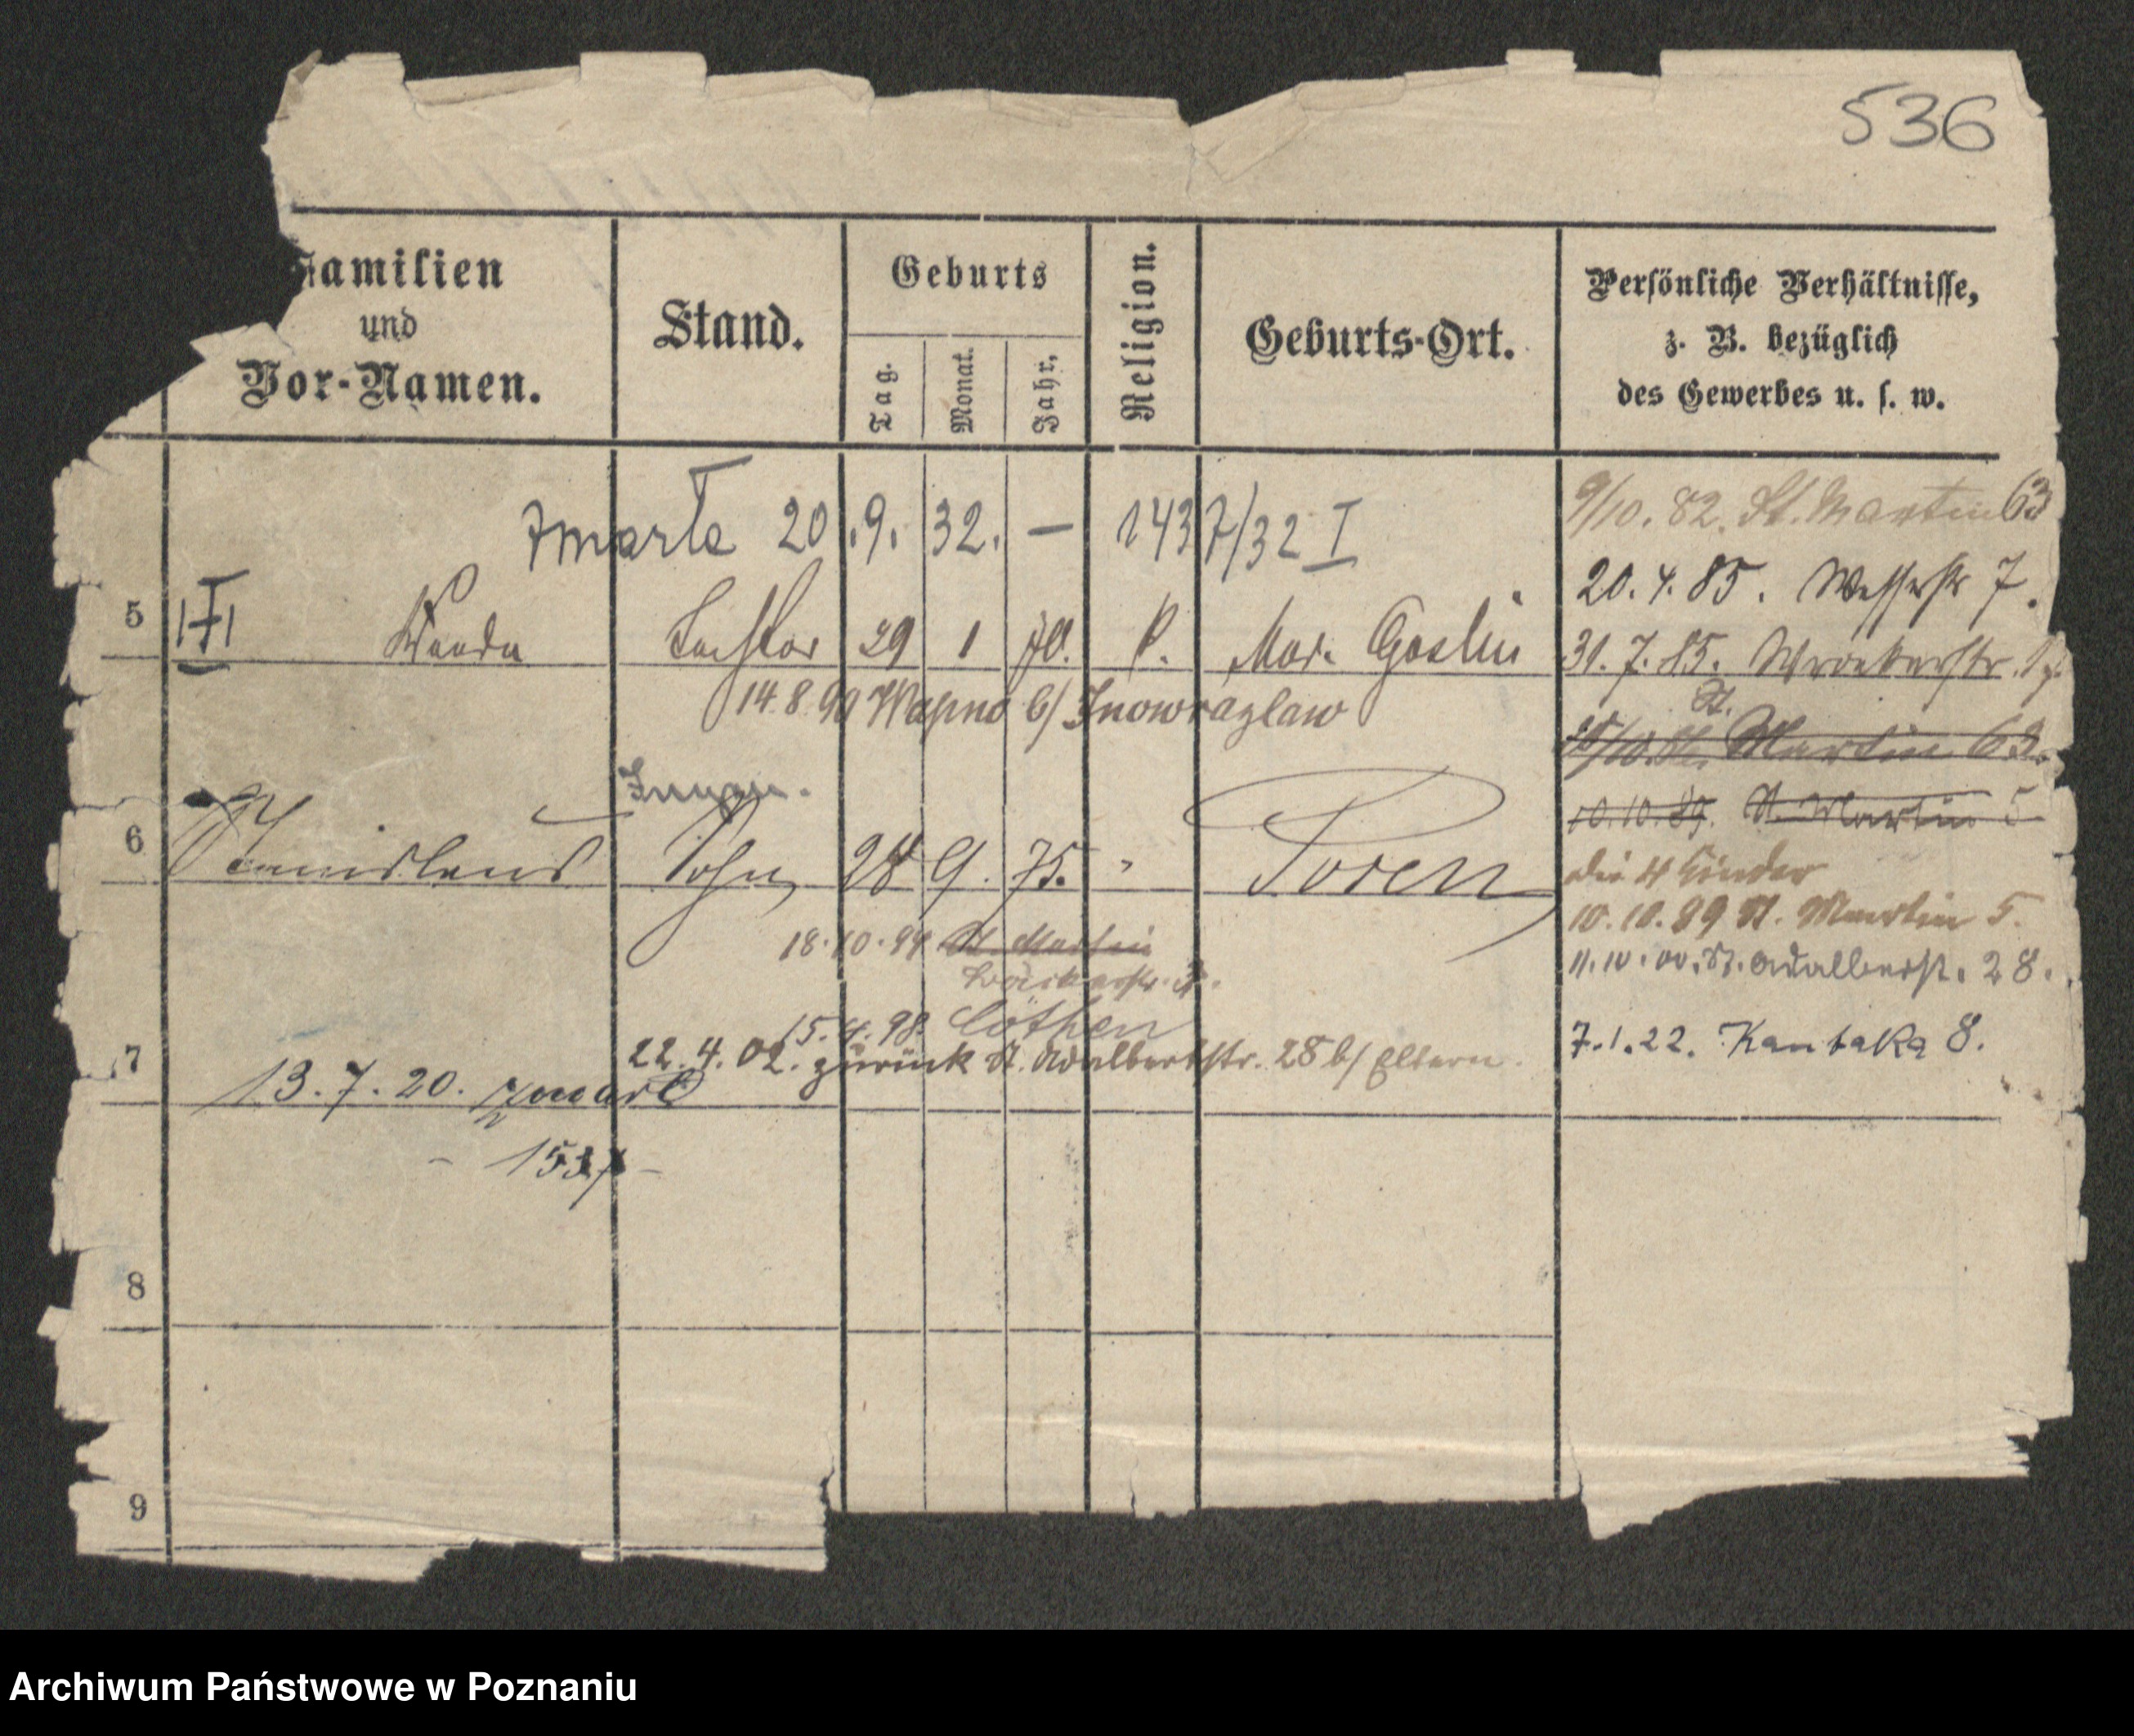 536
Familien
und
Vor-Namen.
Stand.
Geburts
Tag.
Monat.
Jahr.
Religion.
Geburts-Ort.
Persönliche Verhältnisse,
z. B. bezüglich
des Gewerbes u. s. w.
zmarła 20.9.32. — 1437/32 I
5 Wanda Tochter 29 1 70. k. Mur. Goslin
14.8.90 Wapno b/ Inowrazlaw
6 Stanislaus Sohn 28 9. 75. " Posen
18.10.94 St. Martin
15.4.98. Cöthen
22.4.02. zurück St. Adalbertstr. 28 b/ Eltern.
7 13.7.20. zmarł
8
9
9/10. 82. St. Martin 63
20.4.85. Wasserstr 7.
31.7.85. Wronkerstr.
St. Martin 63.
10.10.89. St. Martin 5
die 4 Kinder
10.10.89 St. Martin 5.
11.10.00. St. Adalbertst. 28.
7.1.22. Kantaka 8.
Archiwum Państwowe w Poznaniu